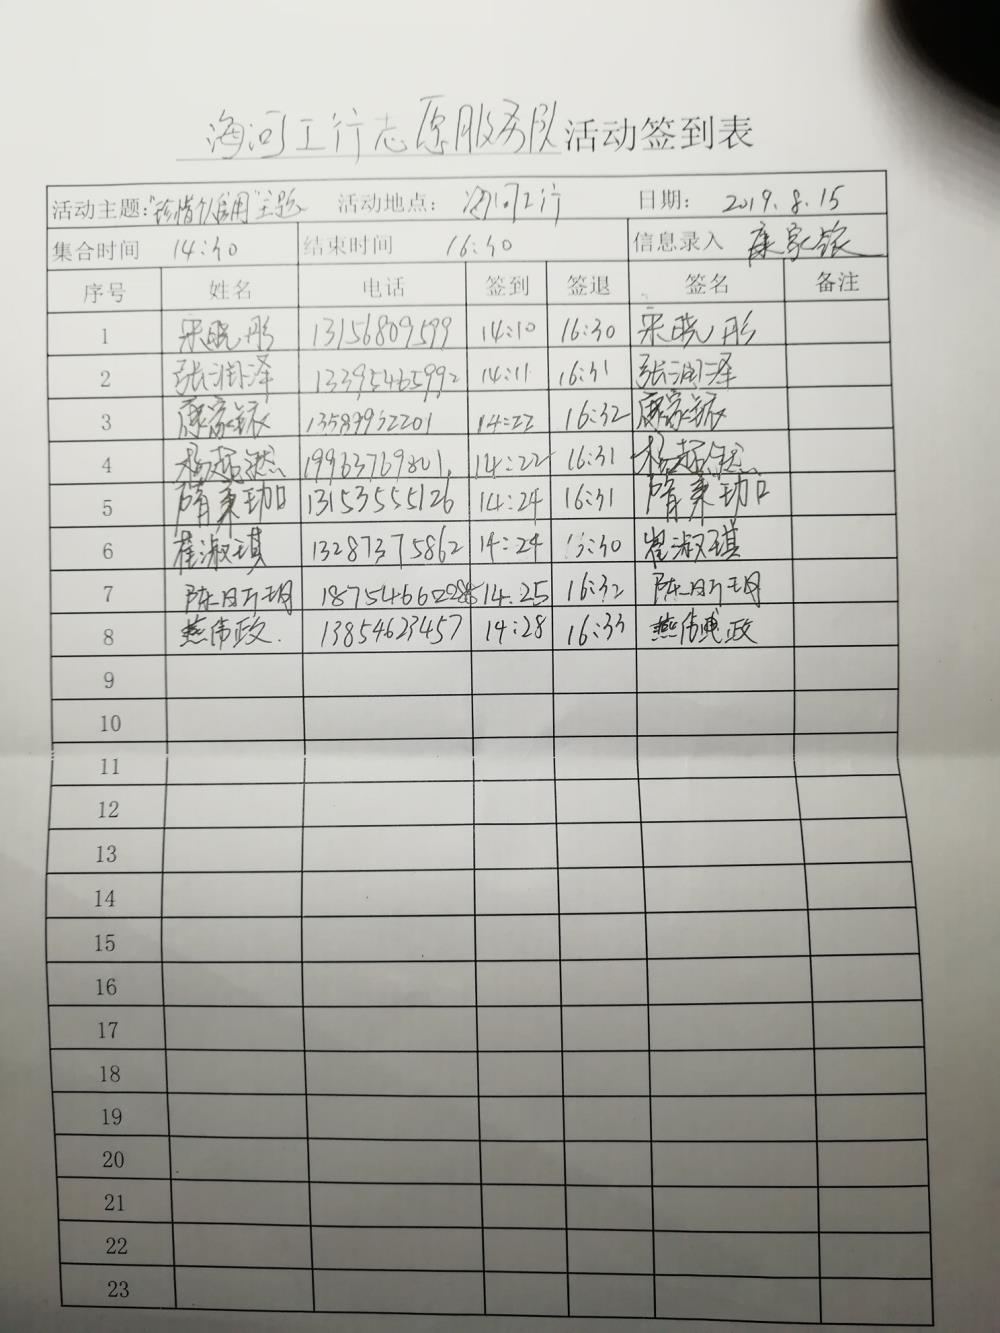 海河工行志愿服务队活动签到表
活动主题:"珍惜个人信用"主题 活动地点: 海河工行 日期: 2019.8.15
集合时间 14:30 结束时间 16:30 信息录入 康家铱
序号 姓名 电话 签到 签退 签名 备注
1 宋晓彤 13156809599 14:10 16:30 宋晓彤
2 张润泽 13395465992 14:11 16:31 张润泽
3 康家铱 13589932201 14:22 16:32 康家铱
4 杨超然 19963769801 14:22 16:31 杨超然
5 隋秉珈 13153555126 14:24 16:31 隋秉珈
6 崔淑琪 13287375862 14:24 16:30 崔淑琪
7 陈昕玥 14:25 16:32 陈昕玥
8 燕伟政 13854623457 14:28 16:33 燕伟政
9
10
11
12
13
14
15
16
17
18
19
20
21
22
23